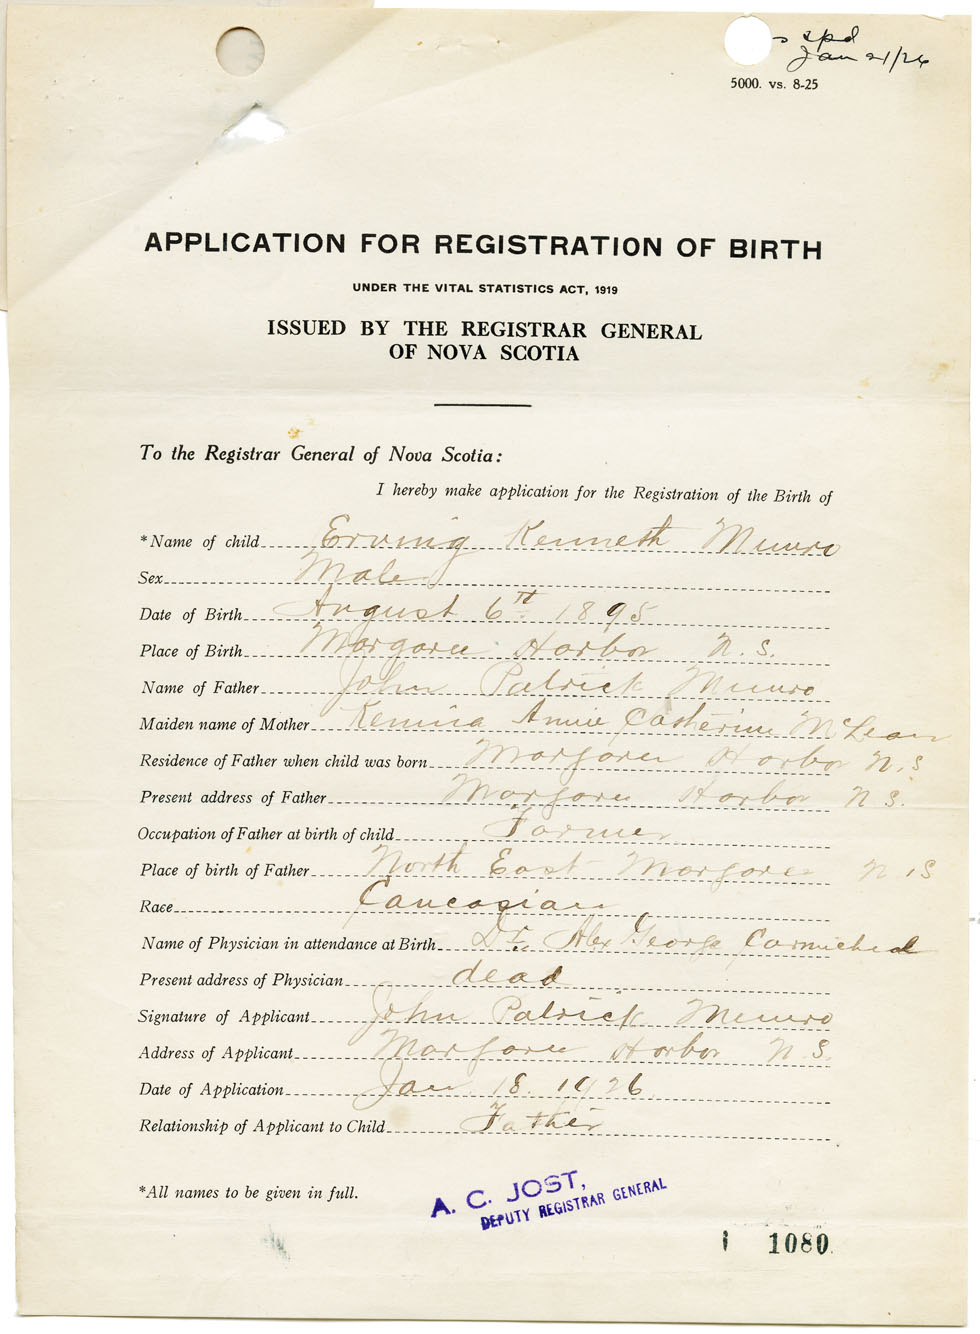 spd
Jan 21/26
5000. vs. 8-25
APPLICATION FOR REGISTRATION OF BIRTH
UNDER THE VITAL STATISTICS ACT, 1919
ISSUED BY THE REGISTRAR GENERAL
OF NOVA SCOTIA
To the Registrar General of Nova Scotia:
I hereby make application for the Registration of the Birth of
*Name of child Erving Kenneth Munro
Sex Male
Date of Birth August 6th 1895
Place of Birth Margaree Harbor N.S.
Name of Father John Patrick Munro
Maiden name of Mother Annie Catherine McLean
Residence of Father when child was born Margaree Harbor N.S
Present address of Father Margaree Harbor N S.
Occupation of Father at birth of child Farmer
Place of birth of Father North East Margaree N.S
Race Caucasian
Name of Physician in attendance at Birth Dr. Alex George Carmichael
Present address of Physician dead
Signature of Applicant John Patrick Munro
Address of Applicant Margaree Harbor N.S.
Date of Application Jan. 18. 1926
Relationship of Applicant to Child Father
*All names to be given in full.
A. C. JOST,
DEPUTY REGISTRAR GENERAL
1080